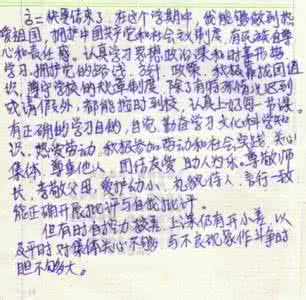 高二快要结束了。在这个学期中，我能够做到热
爱祖国，拥护中国共产党和社会主义制度，有民族自尊
心和责任感。认真学习思想政治课和时事形势
学习，拥护党的路线、方针、政策，积极靠拢团组
织，遵守学校的规章制度，除了有特殊情况迟到
或请假外，都能按时到校，认真上好每一节课。
有正确的学习目的，自觉、勤奋学习文化科学知
识。热爱劳动，积极参加劳动和社会实践。关心
集体，尊重他人，团结友爱，助人为乐。尊敬师
长，孝敬父母，爱护幼小，礼貌待人，言行一致
能正确开展批评与自我批评。
但有时自控力较差，上课仍有开小差，以
及平时对集体关心不够，与不良现象作斗争的
胆不够大。